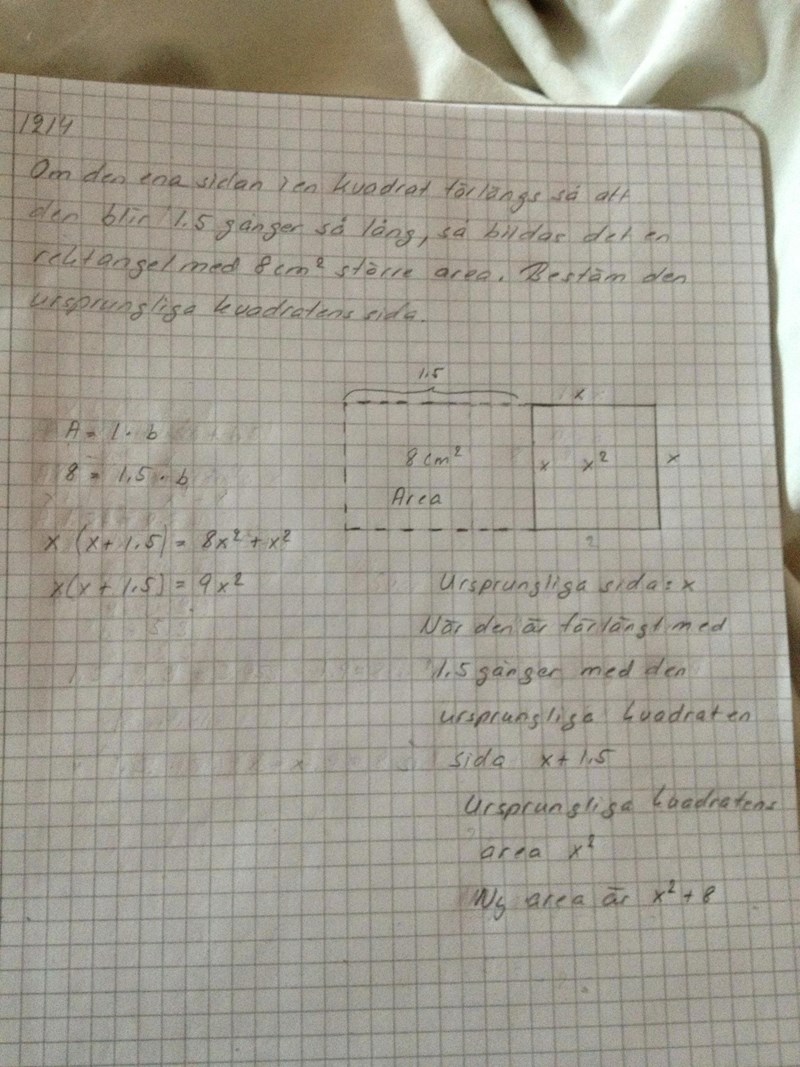 1214
Om den ena sidan i en kvadrat förlängs så att
den blir 1.5 gånger så lång, så bildas det en
rektangel med 8 cm² större area. Bestäm den
ursprungliga kvadratens sida.
1.5
x
A = l · b
8 cm²
x
x²
x
8 = 1.5 · b
Area
x (x + 1.5) = 8x² + x²
2
x(x + 1.5) = 9x²
Ursprungliga sida: x
När den är förlängt med
1.5 gånger med den
ursprungliga kvadraten
sida x + 1.5
Ursprungliga kvadratens
area x²
Ny area är x² + 8